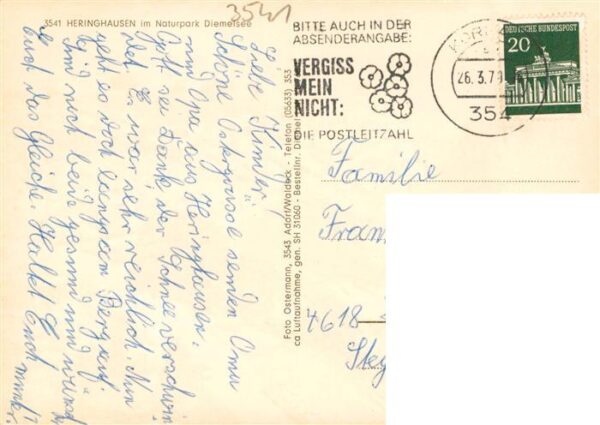 3541
3541 HERINGHAUSEN im Naturpark Diemelsee
Liebe Kinder!
Schöne Ostergrüsse senden Oma
und Opa aus Heringhausen.
Gott sei Dank der Schnee verschwin
det. Es war sehr reichlich. Nun
geht es doch langsam Bergauf.
Sind noch beide gesund und wünscht
Euch das Gleiche. Haltet Euch munter.
Foto Ostermann, 3543 Adorf/Waldeck - Telefon (05633) 353
ca Luftaufnahme, gen. SH 31060 - Bestellnr. Diemel
BITTE AUCH IN DER
ABSENDERANGABE:
VERGISS
MEIN
NICHT:
DIE POSTLEITZAHL
26.3.7
354
DEUTSCHE BUNDESPOST
20
Familie
Fran
4618